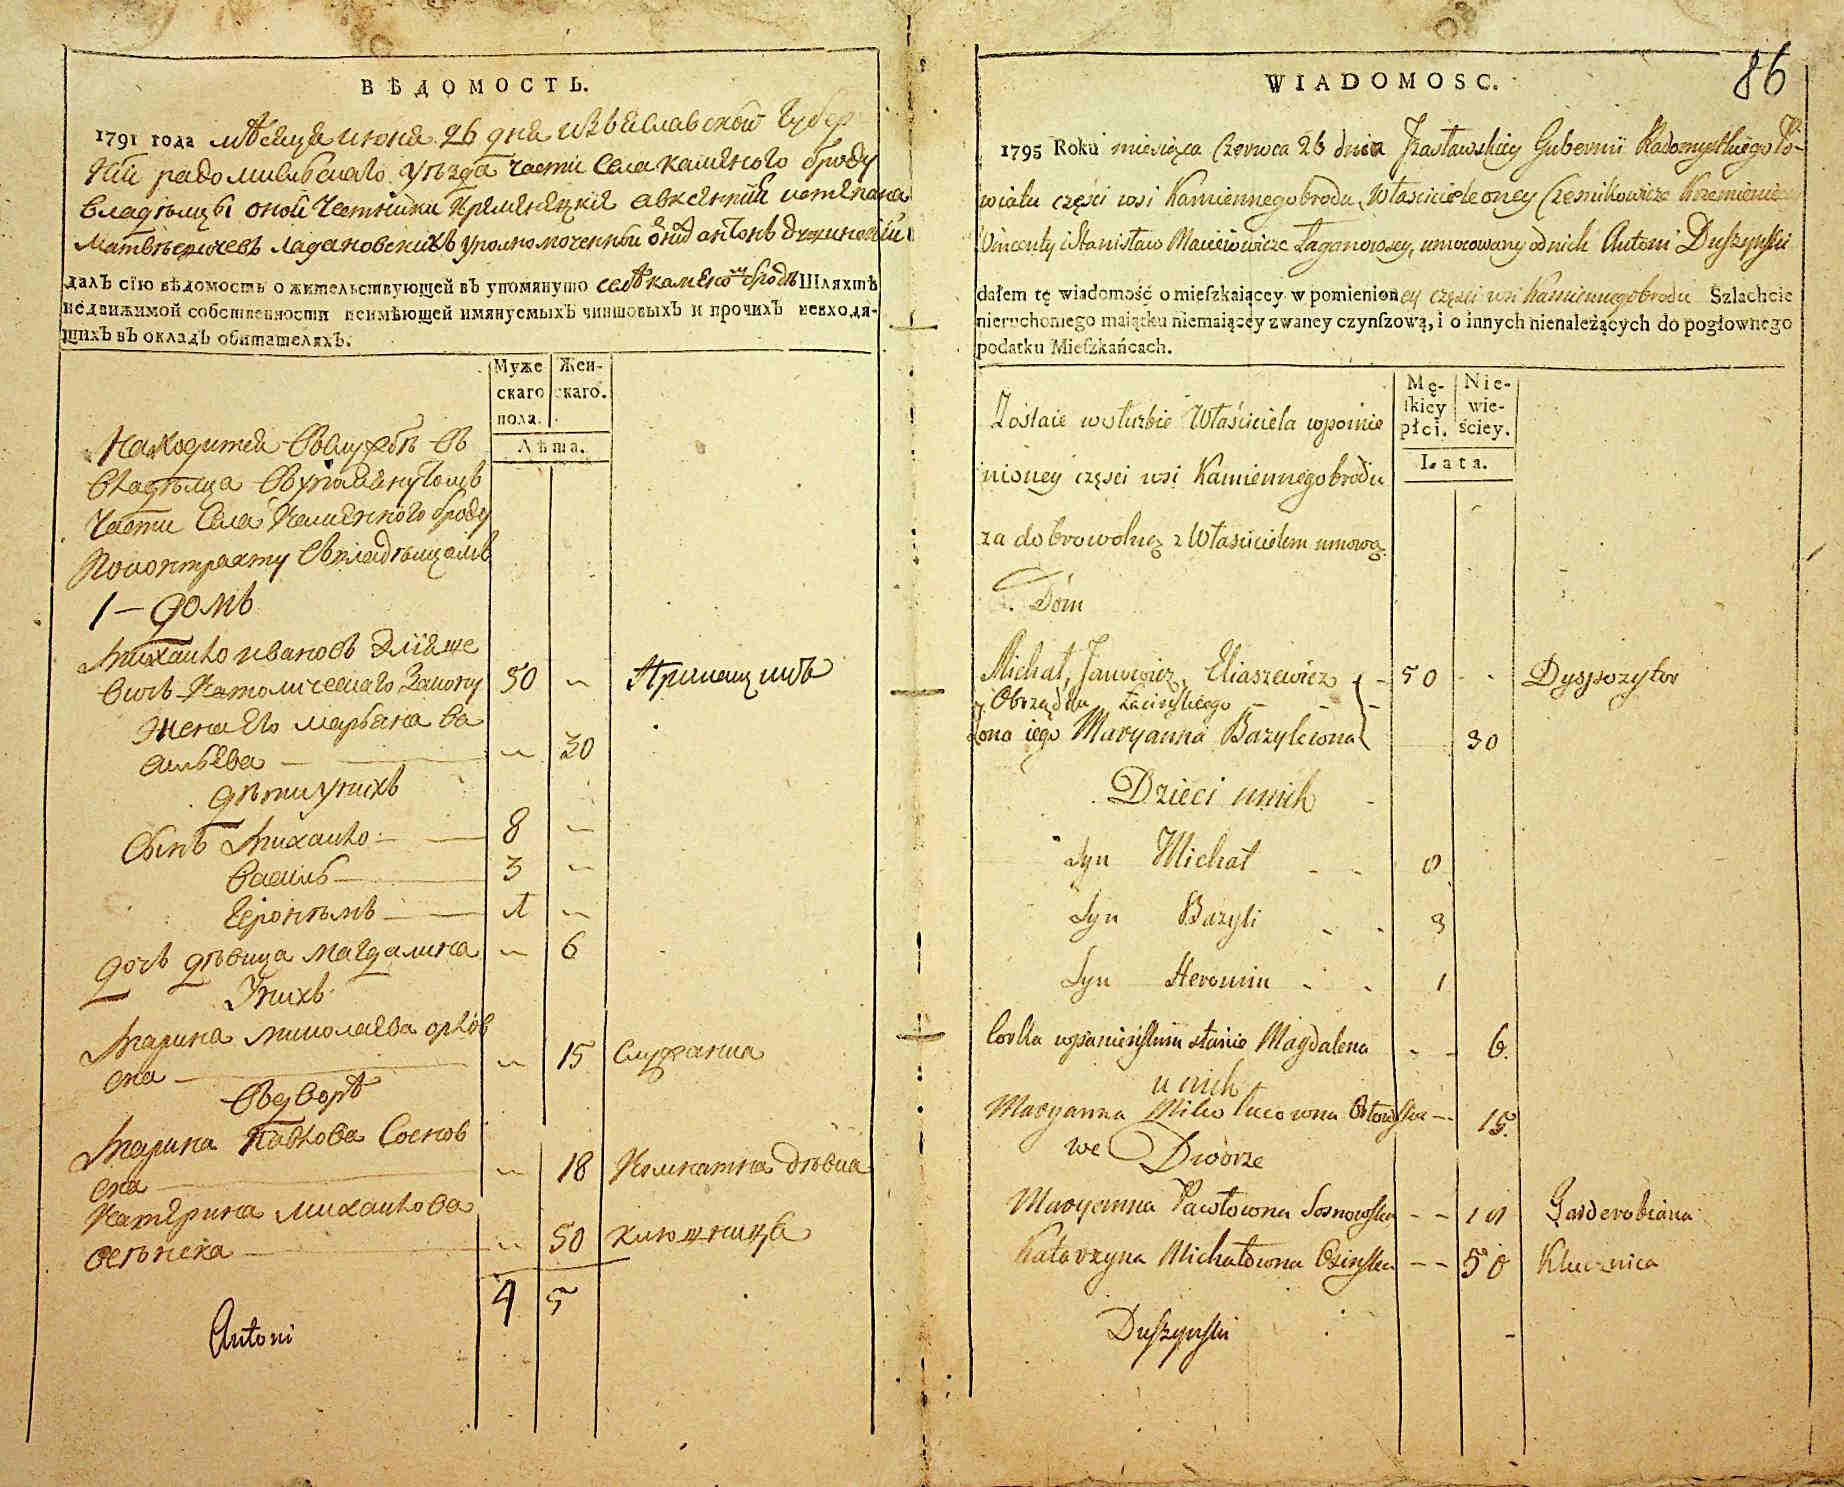 ВѢДОМОСТЬ.
1791 года мѣсяца июня 26 дня изяславской губер
нии радомисльскаго уѣзда части села каменого броду
владѣльцы оной честники кремянецкие авксентий истепана
матвѣевичевъ лагановскихъ уполномоченный антонъ душинский
далъ сію вѣдомость о жительствующей въ упомянуто селѣ каменомъ бродѣ Шляхтѣ
недвижимой собственности неимѣющей имянуемыхъ чиншовыхъ и прочихъ невходя-
щихъ въ окладъ обитателяхъ.
Муже Жен-
скаго скаго.
пола.
Лѣта.
Находится вслужбѣ въ
владѣлца вупомянутомъ
части села Каменного броду
поконтракту свладѣлцомъ
1 — домъ
Михайло ивановъ Элияше
вичъ Католическаго Закону 50 —
Жена Его марьяна ва
сильева — — 30
дѣти унихъ
сынъ Михайло — 8 —
василь — 3 —
Еронимъ — 1 —
дочь дѣвица магдалина — 6
Унихъ
Марина николаева орлов
ска — — 15 служанка
вдворѣ
Марина Павлова Соснов
ска — — 18 Комнатна дѣвка
Катерина михайлова
осѣнска — — 50 ключница
4 5
Antoni
86
WIADOMOSC.
1795 Roku miesiąca Czerwca 26 dnia Izasławskiey Gubernii Radomyślskiego Po-
wiatu części wsi Kamiennegobrodu, Właściciele oney Czesnikowicze Krzemienieccy
Wincenty i Stanisław Maciejowicze Łaganowscy, umocowany od nich Antoni Duszyński
dałem tę wiadomość o mieſzkaiącey w pomienioney części wsi Kamiennegobrodu Szlachcie
nieruchomego maiątku niemaiącey zwaney czynſzową, i o innych nienależących do pogłownego
podatku Mieſzkańcach.
Mę- Nie-
ſkiey wie-
płci. ściey.
Lata.
Zostaie w służbie Właściciela wpomie
nioney części wsi Kamiennegobrodu
za dobrowolną z Właścicielem umową.
1. Dom
Michał, Janowicz, Eliaszewicz — 50 - - Dyspozytor
z Obrządku Łacinskiego
Zona iego Maryanna Bazylewna 30
Dzieci unich
Syn Michał - - 8
Syn Bazyli - - 3
Syn Heronim - - 1
Corka wpanieńskim stanie Magdalena - - 6.
u nich
Maryanna Mikołaiowna Orłowska — 15.
we Dworze
Maryanna Pawłowna Sosnowska - - 18 Garderobiana
Katarzyna Michałowna Osinska - - 50 Klucznica
Duszynski